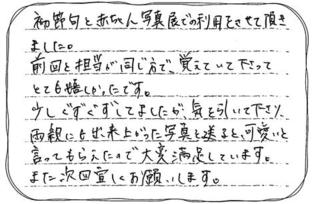 初節句と赤ちゃん写真展での利用をさせて頂き
ました。
前回と担当が同じ方で、覚えていて下さって
とても嬉しかったです。
少しぐずぐずしてましたが、気を引いて下さり、
両親にも出来上がった写真を送ると、可愛いと
言ってもらえたので大変満足しています。
また次回宜しくお願いします。